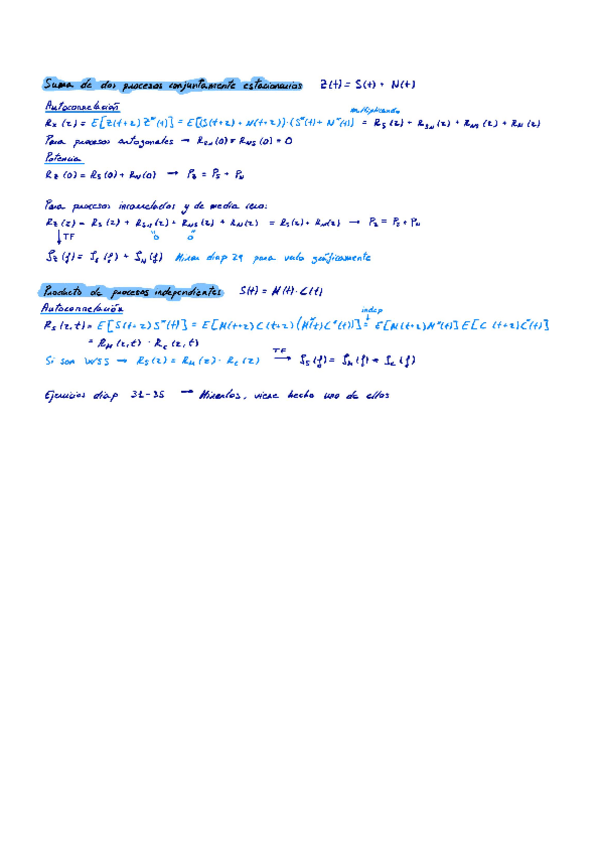 Suma de dos procesos conjuntamente estacionarios Z(t) = S(t) + N(t)
Autocorrelación
multiplicando
Rx(z) = E[Z(t+z) Z*(t)] = E[(S(t+z) + N(t+z))·(S*(t) + N*(t))] = Rs(z) + RSN(z) + RNS(z) + RN(z)
Para procesos ortogonales → RSN(0) = RNS(0) = 0
Potencia
Rz(0) = Rs(0) + RN(0) → Pz = Ps + PN
Para procesos incorrelados y de media cero:
Rz(z) = Rs(z) + RSN(z) + RNS(z) + RN(z) = Rs(z) + RN(z) → Pz = Ps + PN
↓TF
0 0
Sz(f) = Ss(f) + SN(f) Mirar diap 29 para verlo gráficamente
Producto de procesos independientes S(t) = M(t)·C(t)
Autocorrelación
indep
Rs(z,t) = E[S(t+z) S*(t)] = E[M(t+z) C(t+z) (M*(t) C*(t))] = E[M(t+z) M*(t)] E[C(t+z) C*(t)]
= RM(z,t) · Rc(z,t)
Si son WSS → Rs(z) = RM(z) · Rc(z) TF → Ss(f) = SM(f) * Sc(f)
Ejercicios diap 31-35 → Mirarlos, viene hecho uno de ellos